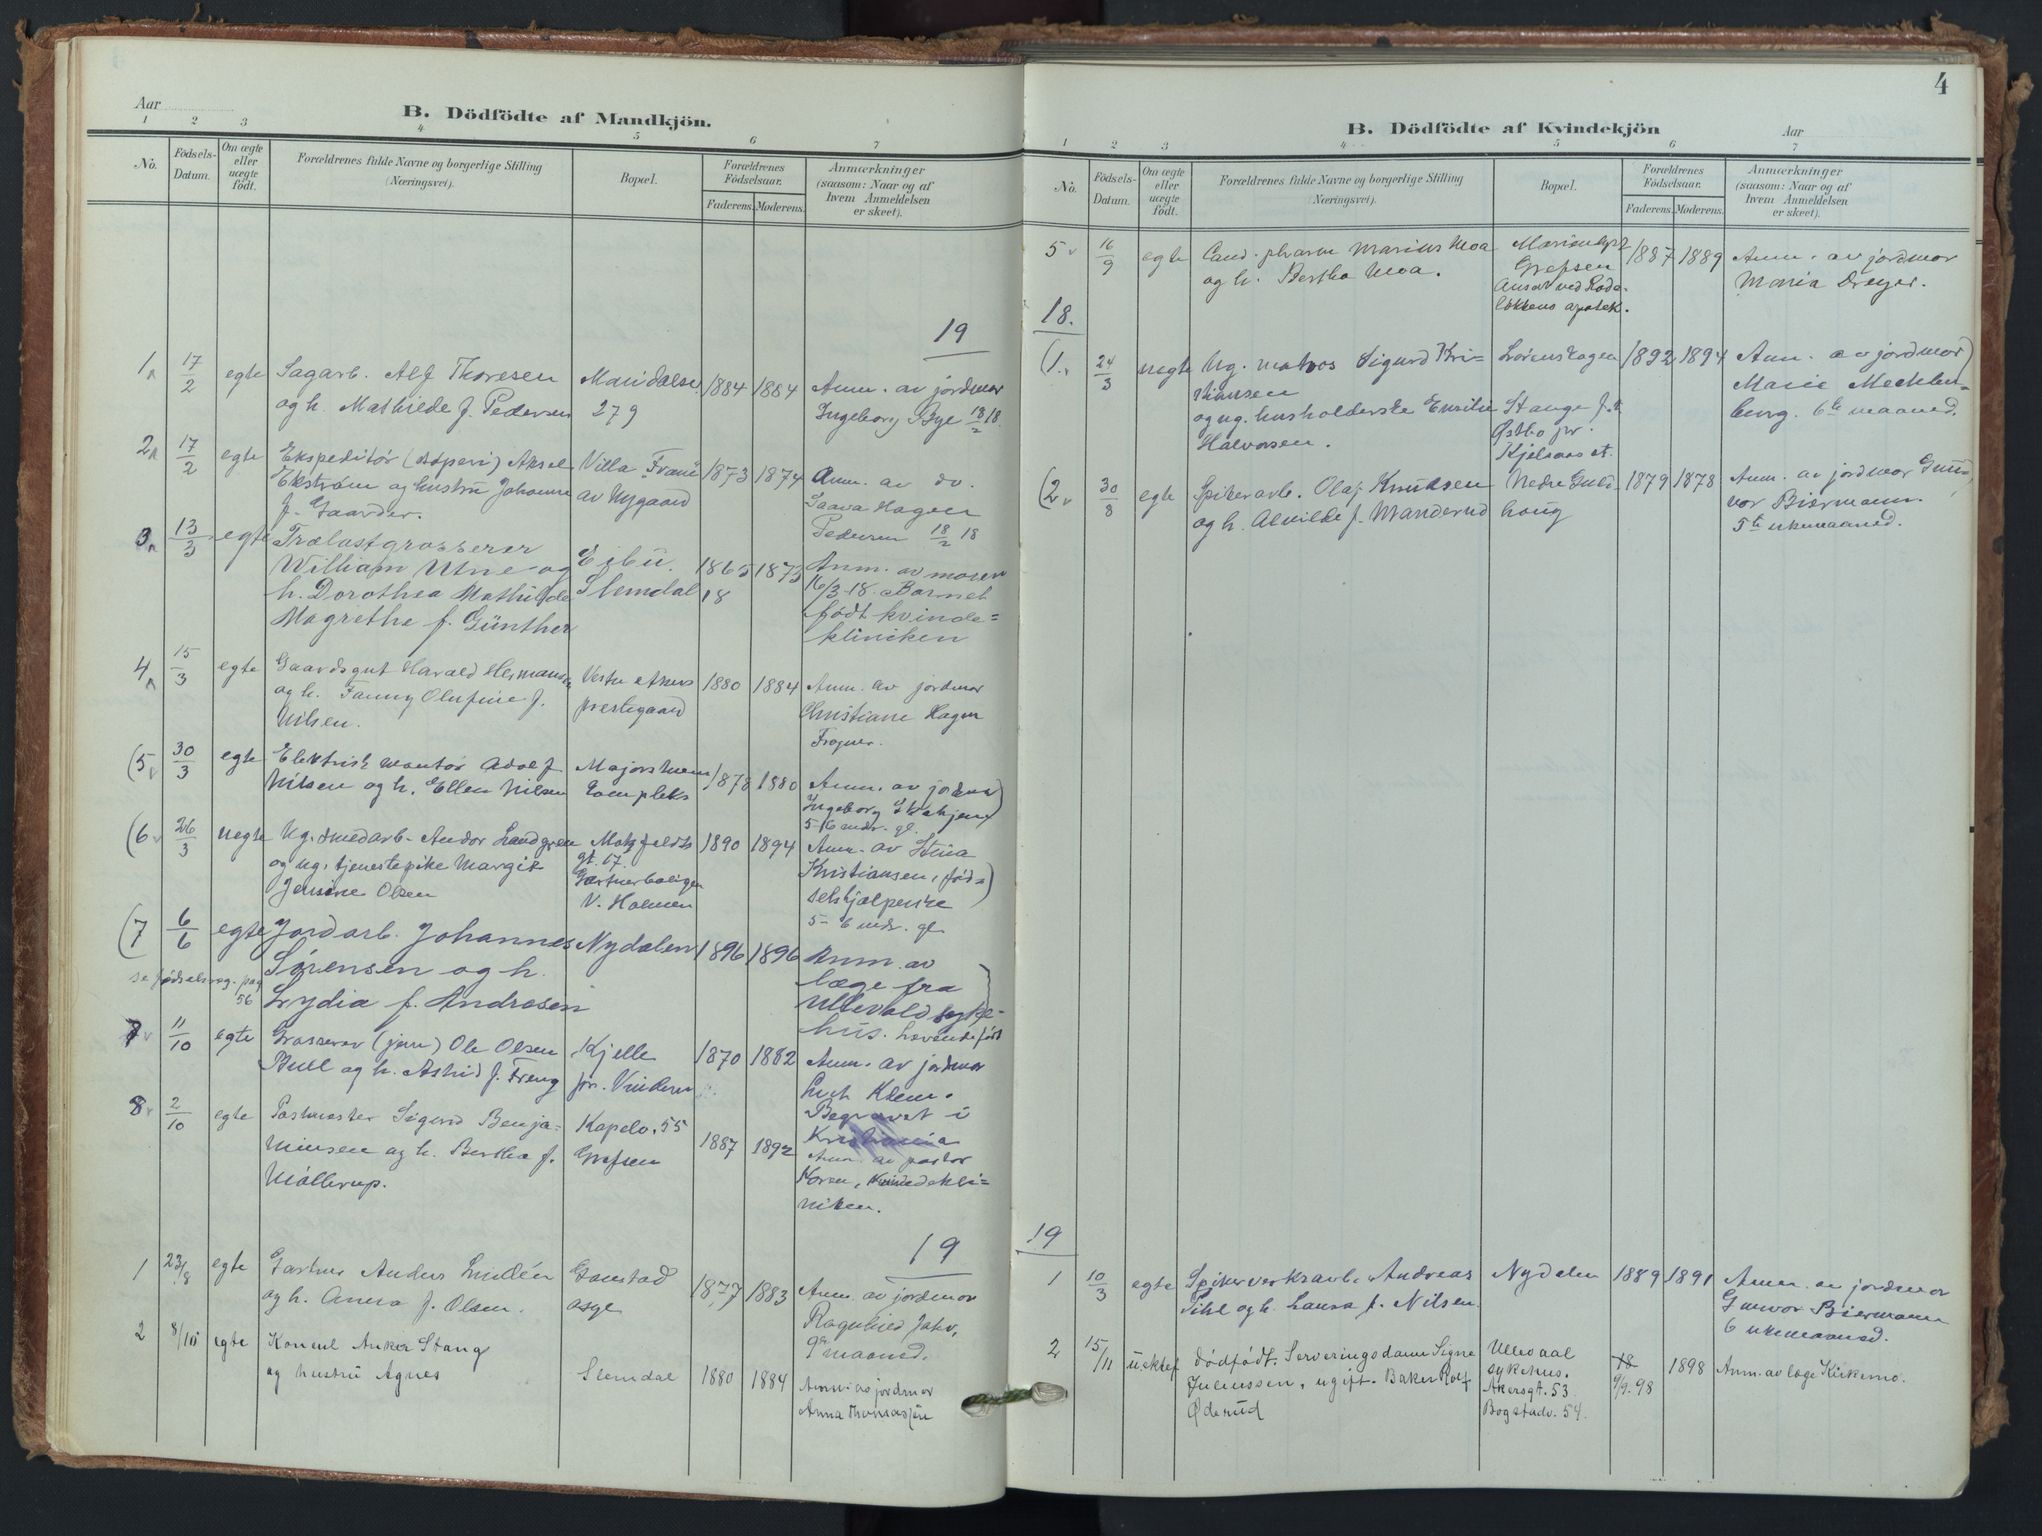 Aar
B. Dödfödte af Mandkjön.
1 2 3 4 5 6 7
No.
Födsels-Datum.
Om ægte eller uægte födt.
Forældrenes fulde Navne og borgerlige Stilling
(Næringsvei).
Bopæl.
Forældrenes Födselsaar.
Faderens. Moderens.
Anmærkninger
(saasom: Naar og af
hvem Anmeldelsen
er skeet).
19
1 17/2 egte Sagarb. Alf Thoresen Maridalsv. 1884 1884 Anm. av jordmor
og h. Mathilde f. Pedersen 279 Ingeborg Bye 18/2 18.
2 17/2 egte Ekspeditør Aksel Villa 1873 1874 Anm. av do.
Ekstrøm og hustru Johanne av Nygaard Hagen
f. Gaarder. Pedersen 18/2 18
3 13/3 egte Trælastgrosserer
William Utne og 1865 1873 Anm. av moren
h. Dorothea Mathilde Slemdal 18 16/3-18. Barnet
Magrethe f. Günther født kvinde=
kliniken
4 15/3 egte Gaardsgut Harald Hermansen Vestre Akers 1880 1884 Anm. av jordmor
og h. Fanny Olufine f. prestegaard Christiane Hagen
Nilsen. Frogner.
(5 30/3 egte Elektrisk montør Adolf Majorstuens 1878 1880 Anm. av jordmor
Nilsen og h. Ellen Nilsen kompleks Ingeborg
5-6 mdr. gl.
(6 26/3 uegte Ug. smedarb. Andor Landgren 1890 1894 Anm. av Stina
og ug. tjenestepike Margit gt. 17. Kristiansen, fød=
Jensine Olsen Gartnerboligen selshjælperske
V. Holmen 5-6 mdr. gl.
(7 6/6 egte Jordarb. Johannes Nydalen 1896 1896 Anm. av
Sørensen og h. læge fra
se fødselsreg. pag 56 Lydia f. Andrasen Ullevold syke-
hus. Levendefødt
7 11/10 egte Grosserer (jern) Ole Olsen Kjelle 1870 1882 Anm. av jordmor
Bull og h. Astrid f. Freng pr. Vinderen Klem.
Begravet i
Kristiania
8 2/10 egte Postmester Sigurd Benja= Kapelv. 55 1887 1892 Anm. av pastor
minsen og h. Bertha f. Grefsen Koren, Kvindekli=
Møllerup. niken.
19
1 23/8 egte Gartner Anders Lindén Gaustad 1877 1883 Anm. av jordmor
og h. Anna f. Olsen. asyl Ragnhild Jakv.
9de maaned.
2 8/10 egte Konsul Anker Stang
og hustru Agnes Slemdal 1880 1884 Anm. av jordmor
Anna
4
B. Dödfödte af Kvindekjön
Aar
1 2 3 4 5 6 7
No.
Födsels-Datum.
Om ægte eller uægte födt.
Forældrenes fulde Navne og borgerlige Stilling
(Næringsvei).
Bopæl.
Forældrenes Födselsaar.
Faderens. Moderens.
Anmærkninger
(saasom: Naar og af
hvem Anmeldelsen
er skeet).
5 16/9 egte Cand. pharm Marius Moa 1887 1889 Anm. av jordmor
og h. Bertha Moa. Grefsen Maria Dreyer.
Ansat ved Rode-
løkkens apotek.
18.
(1. 24/3 uegte Ug. matros Sigurd Kri- Lørenskogen 1892 1894 Anm. av jordmor
stiansen Marie Mecklen-
og ug. husholderske Emilie Stange f.t. burg. 6te maaned.
Halvorsen. Østbo pr.
Kjelsaas st.
(2 30/8 egte Spikerarb. Olaf Knudsen Nedre Guld- 1879 1878 Anm. av jordmor Gun-
og h. Alvilde f. Manderud haug vor Biermann.
5te ukemaaned.
19
1 10/3 egte Spikerverksarb. Andreas Nydalen 1889 1891 Anm. av jordmor
Pihl og h. Laura f. Nilsen. Gunvor Biermann
6 ukemaaned.
2 15/11 uektef dødfødt. Serveringsdame Signe Ullevaal 18 1898 Anm. av læge Kirkemo.
Juliussen, ugift. Baker Rolf sykehus. 9/9. 98
Øderud Akersgt. 53.
Bogstadv. 54.